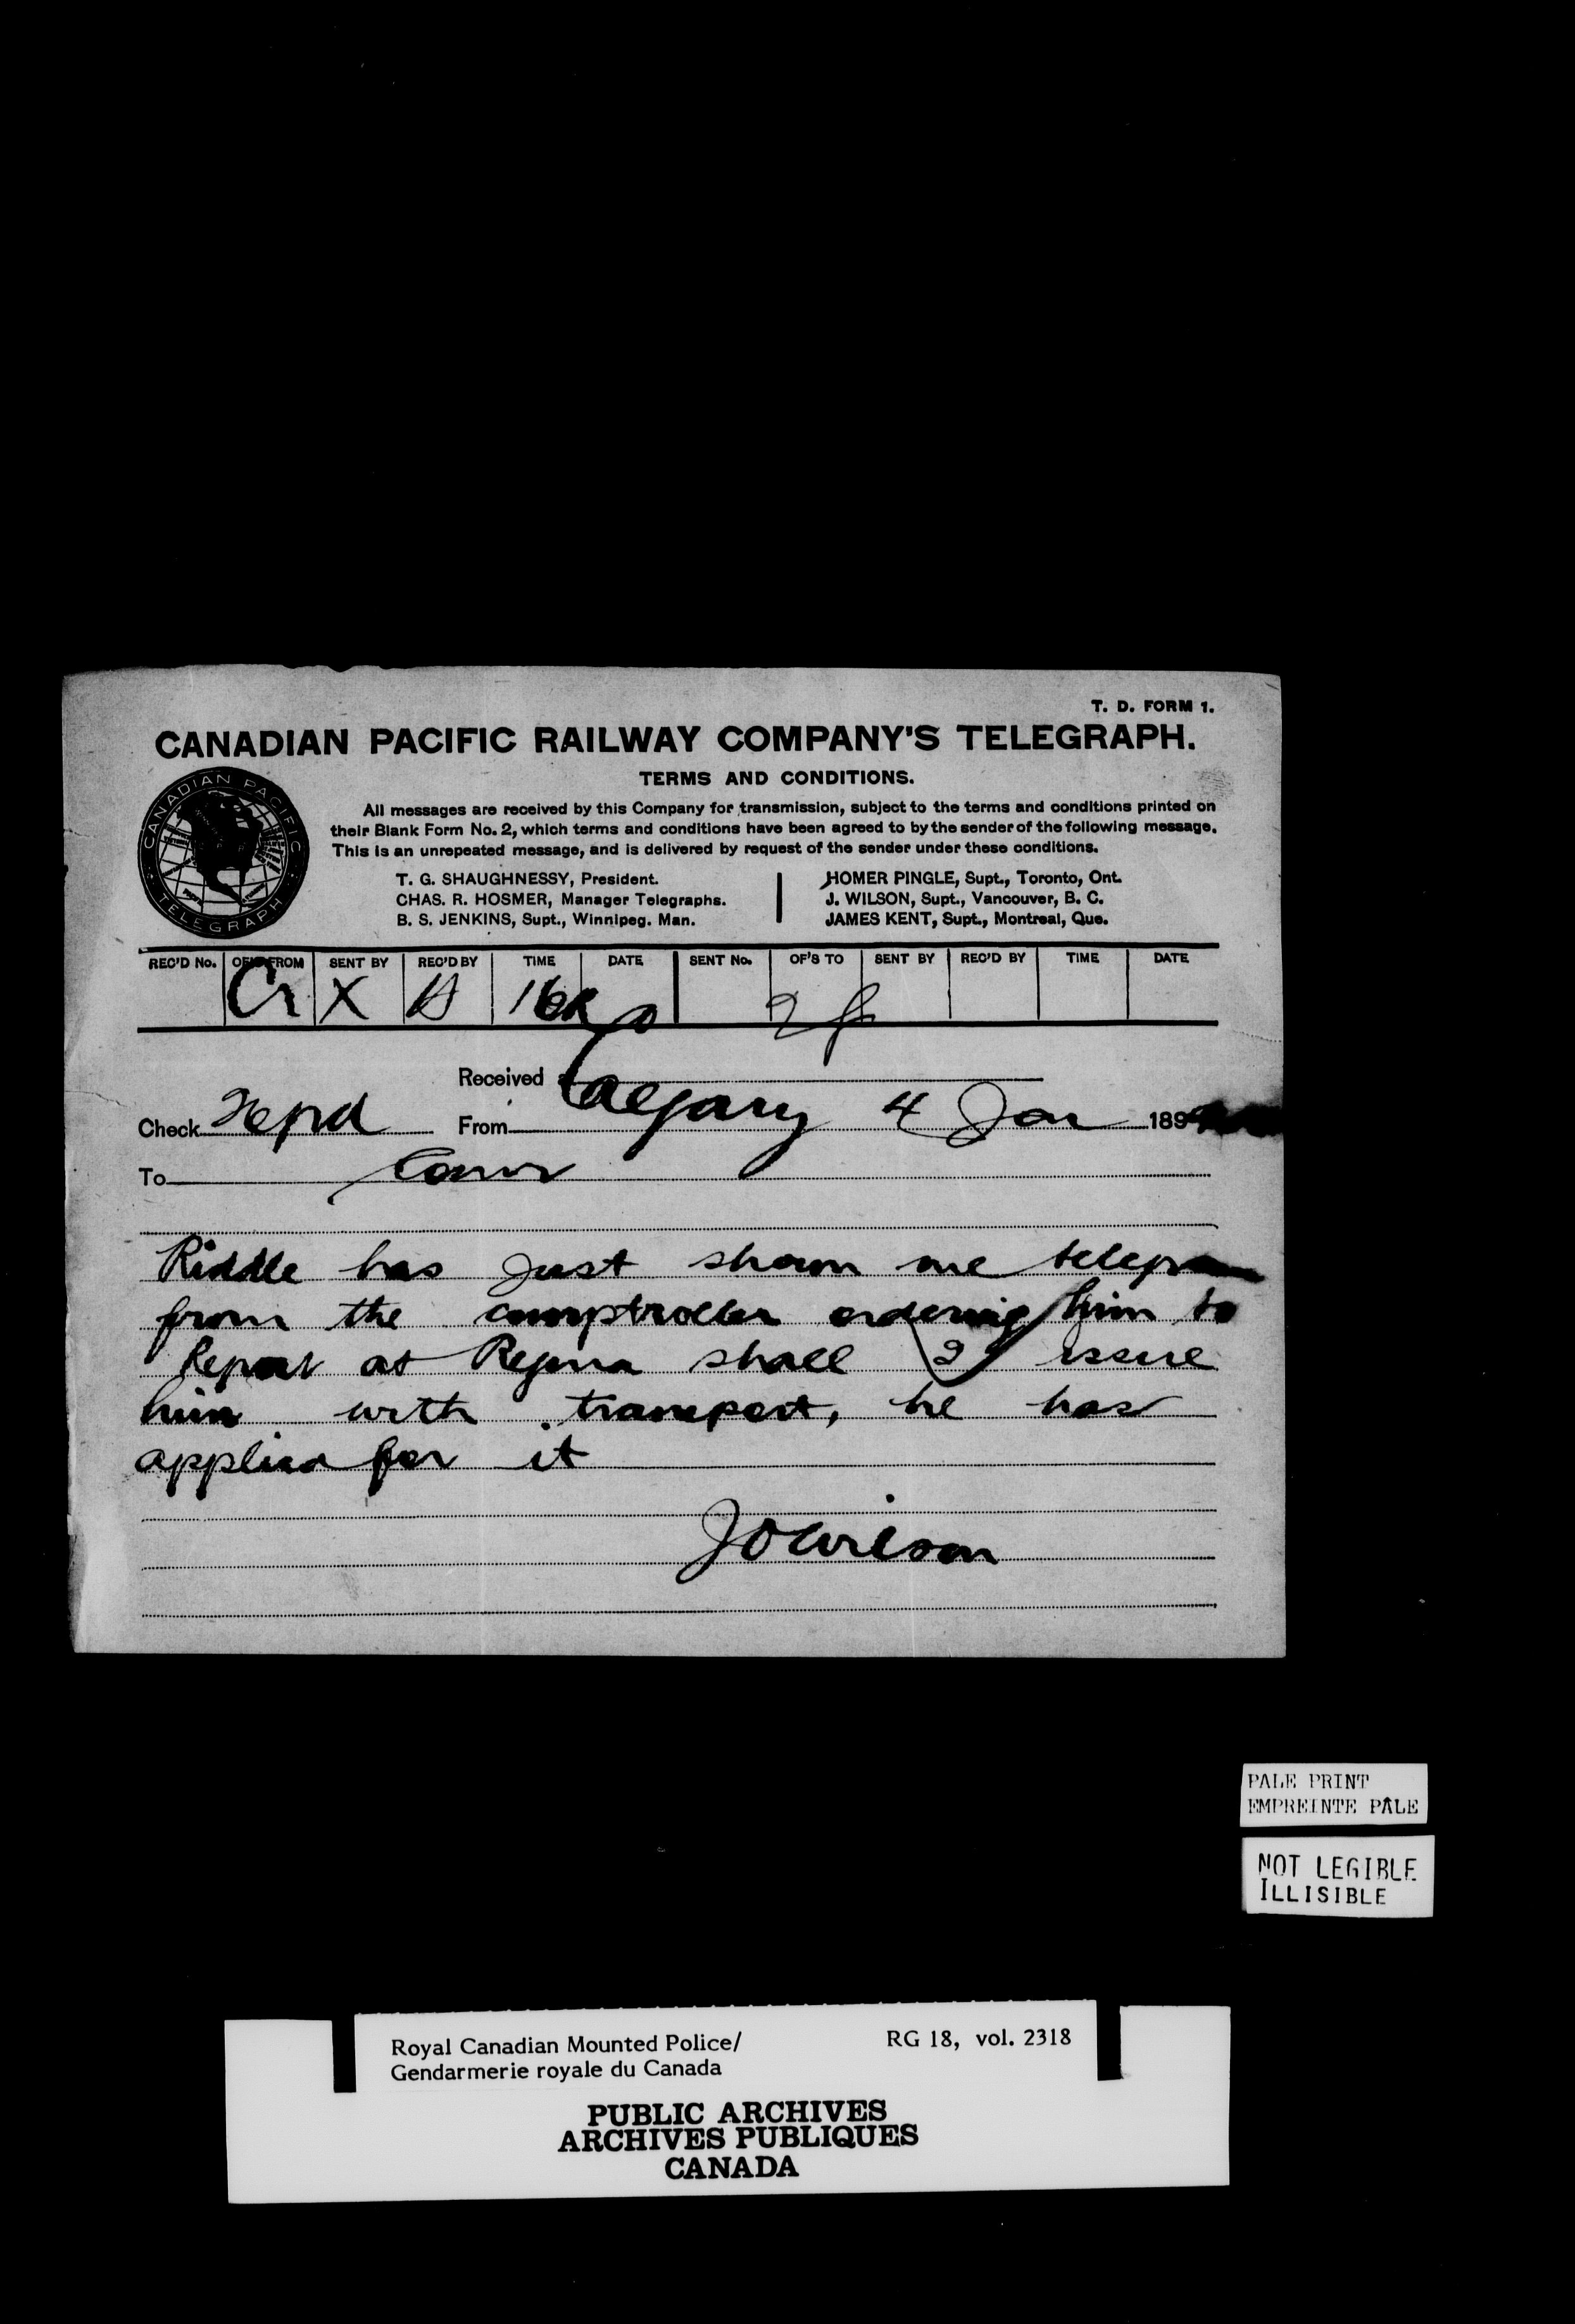 T. D. FORM 1.
CANADIAN PACIFIC RAILWAY COMPANY'S TELEGRAPH.
TERMS AND CONDITIONS.
CANADIAN PACIFIC
TELEGRAPH
All messages are received by this Company for transmission, subject to the terms and conditions printed on
their Blank Form No. 2, which terms and conditions have been agreed to by the sender of the following message.
This is an unrepeated message, and is delivered by request of the sender under these conditions.
T. G. SHAUGHNESSY, President.
CHAS. R. HOSMER, Manager Telegraphs.
B. S. JENKINS, Supt., Winnipeg. Man.
HOMER PINGLE, Supt., Toronto, Ont.
J. WILSON, Supt., Vancouver, B. C.
JAMES KENT, Supt., Montreal, Que.
REC'D No. OF'S FROM SENT BY REC'D BY TIME DATE SENT No. OF'S TO SENT BY REC'D BY TIME DATE
X
Received
Check From Calgary 4 Jan 189
To
Riddle has Just shown me telegram
from the comptroller ordering him to
Report at Regina shall I issue
him with transport, he has
applied for it
JO Wilson
PALE PRINT
EMPREINTE PÂLE
NOT LEGIBLE
ILLISIBLE
Royal Canadian Mounted Police/ RG 18, vol. 2318
Gendarmerie royale du Canada
PUBLIC ARCHIVES
ARCHIVES PUBLIQUES
CANADA